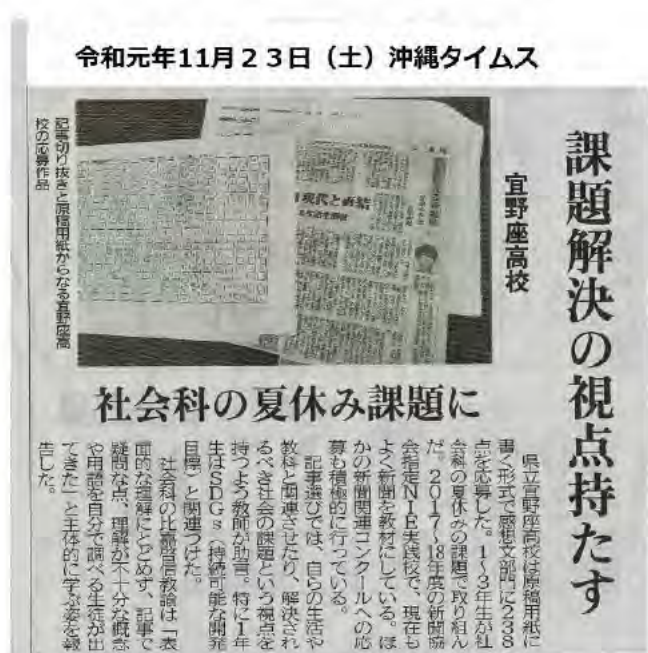 令和元年11月２３日（土）沖縄タイムス
課題解決の視点持たす
宜野座高校
社会科の夏休み課題に
記事切り抜きと原稿用紙からなる宜野座高
校の応募作品
現代と直結
県立宜野座高校は原稿用紙に
書く形式で感想文部門に238
点を応募した。1〜3年生が社
会科の夏休みの課題で取り組ん
だ。2017〜18年度の新聞協
会指定NIE実践校で、現在も
よく新聞を教材にしている。ほ
かの新聞関連コンクールへの応
募も積極的に行っている。
記事選びでは、自らの生活や
教科と関連させたり、解決され
るべき社会の課題という視点を
持つよう教師が助言。特に1年
生はSDGs（持続可能な開発
目標）と関連づけた。
社会科の比嘉教諭は「表
面的な理解にとどめず、記事で
疑問な点、理解が不十分な概念
や用語を自分で調べる生徒が出
てきた」と主体的に学ぶ姿を報
告した。